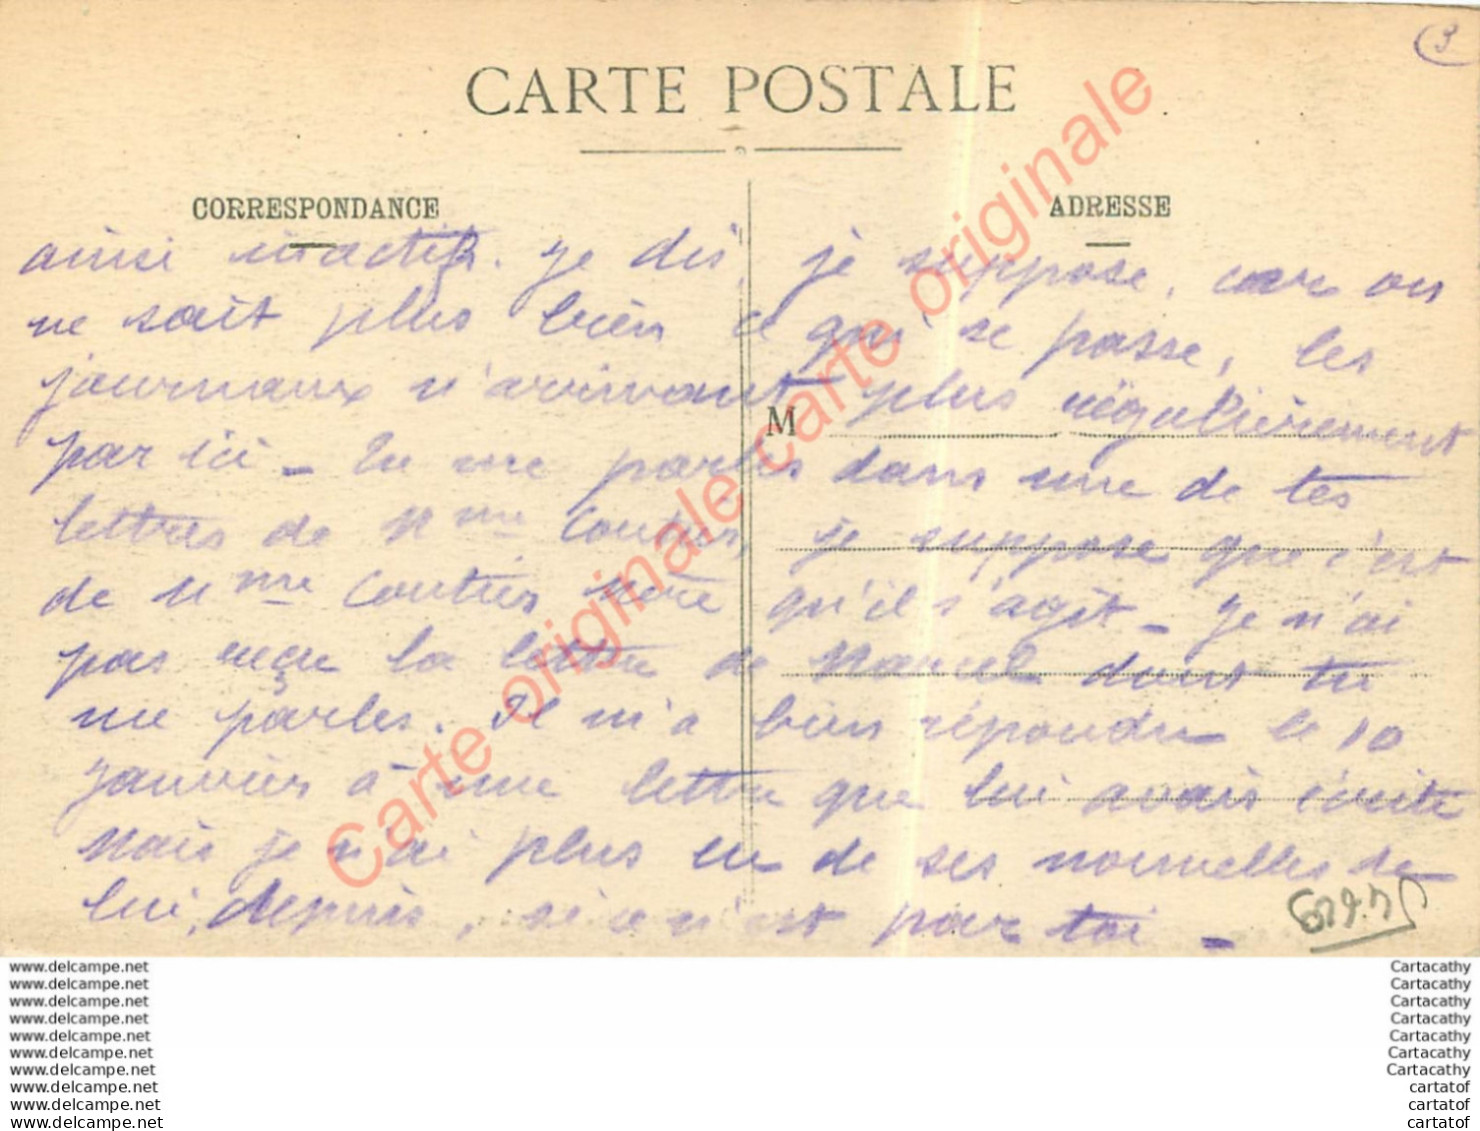 3
CARTE POSTALE
CORRESPONDANCE
ADRESSE
ainsi inactifs. Je dis, je suppose, car on
ne sait plus bien ce qui se passe, les
journaux n'arrivant plus régulièrement
par ici – Tu me parles dans une de tes
M
lettres de Mme Coutier, je suppose que c'est
de Mme Coutier Mère qu'il s'agit – Je n'ai
pas reçu la lettre de Marcel dont tu
me parles. Il m'a bien répondu le 10
janvier à une lettre que lui avais écrite
Mais je n'ai plus eu de ses nouvelles de
lui, depuis, si ce n'est par toi –
Carte originale Carte originale Carte originale
www.delcampe.net
www.delcampe.net
www.delcampe.net
www.delcampe.net
www.delcampe.net
www.delcampe.net
www.delcampe.net
www.delcampe.net
www.delcampe.net
www.delcampe.net
Cartacathy
Cartacathy
Cartacathy
Cartacathy
Cartacathy
Cartacathy
Cartacathy
cartatof
cartatof
cartatof